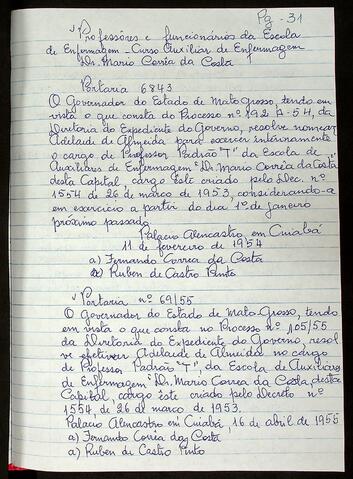 Pg - 31
Professôres e funcionários da Escola
de Enfermagem - Curso Auxiliar de Enfermagem
Dr. Mario Corrêa da Costa
Portaria 6843
O Governador do Estado de Mato Grosso, tendo em
vista o que consta do Processo nº 192 A-54, da
Diretoria do Expediente do Governo, resolve nomear
Adelaide de Almeida para exercer interinamente
o cargo de Professor Padrão "T" da Escola de
Auxiliares de Enfermagem "Dr. Mario Corrêa da Costa"
desta Capital, cargo êste criado pelo Dec. nº
1554 de 26 de março de 1953, considerando-a
em exercício a partir do dia 1º de janeiro
próximo passado.
Palacio Alencastro, em Cuiabá
11 de fevereiro de 1954
a) Fernando Correa da Costa
a) Ruben de Castro Pinto
Portaria nº 69/55
O Governador do Estado de Mato-Grosso, tendo
em vista o que consta no Processo nº 105/55
da Diretoria do Expediente do Governo, resol
ve efetivar Adelaide de Almeida no cargo
de Professor Padrão "T", da Escola de Auxiliares
de Enfermagem "Dr. Mario Correa da Costa, desta
Capital, cargo êste criado pelo Decreto nº
1554, de 26 de março de 1953.
Palacio Alencastro em Cuiabá, 16 de abril de 1955
a) Fernando Corrêa da Costa
a) Ruben de Castro Pinto